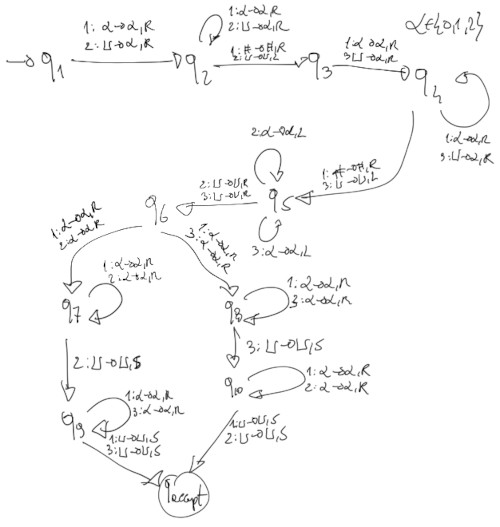 α∈{0,1,2}
q1
1: α→α,R
2: ⊔→α,R
q2
1:α→α,R
2:⊔→α,R
1:#→#,R
2:⊔→⊔,L
q3
1:α→α,R
3:⊔→α,R
q4
1:α→α,R
3:⊔→α,R
1:#→#,R
3:⊔→⊔,L
2:α→α,L
q5
3:α→α,L
2:⊔→⊔,R
3:⊔→⊔,R
q6
1:α→α,R
2:α→α,R
1:α→α,R
3:α→α,R
q7
1:α→α,R
2:α→α,R
q8
1:α→α,R
3:α→α,R
2:⊔→⊔,S
3:⊔→⊔,S
q9
1:α→α,R
3:α→α,R
q10
1:α→α,R
2:α→α,R
1:⊔→⊔,S
3:⊔→⊔,S
1:⊔→⊔,S
2:⊔→⊔,S
qaccept